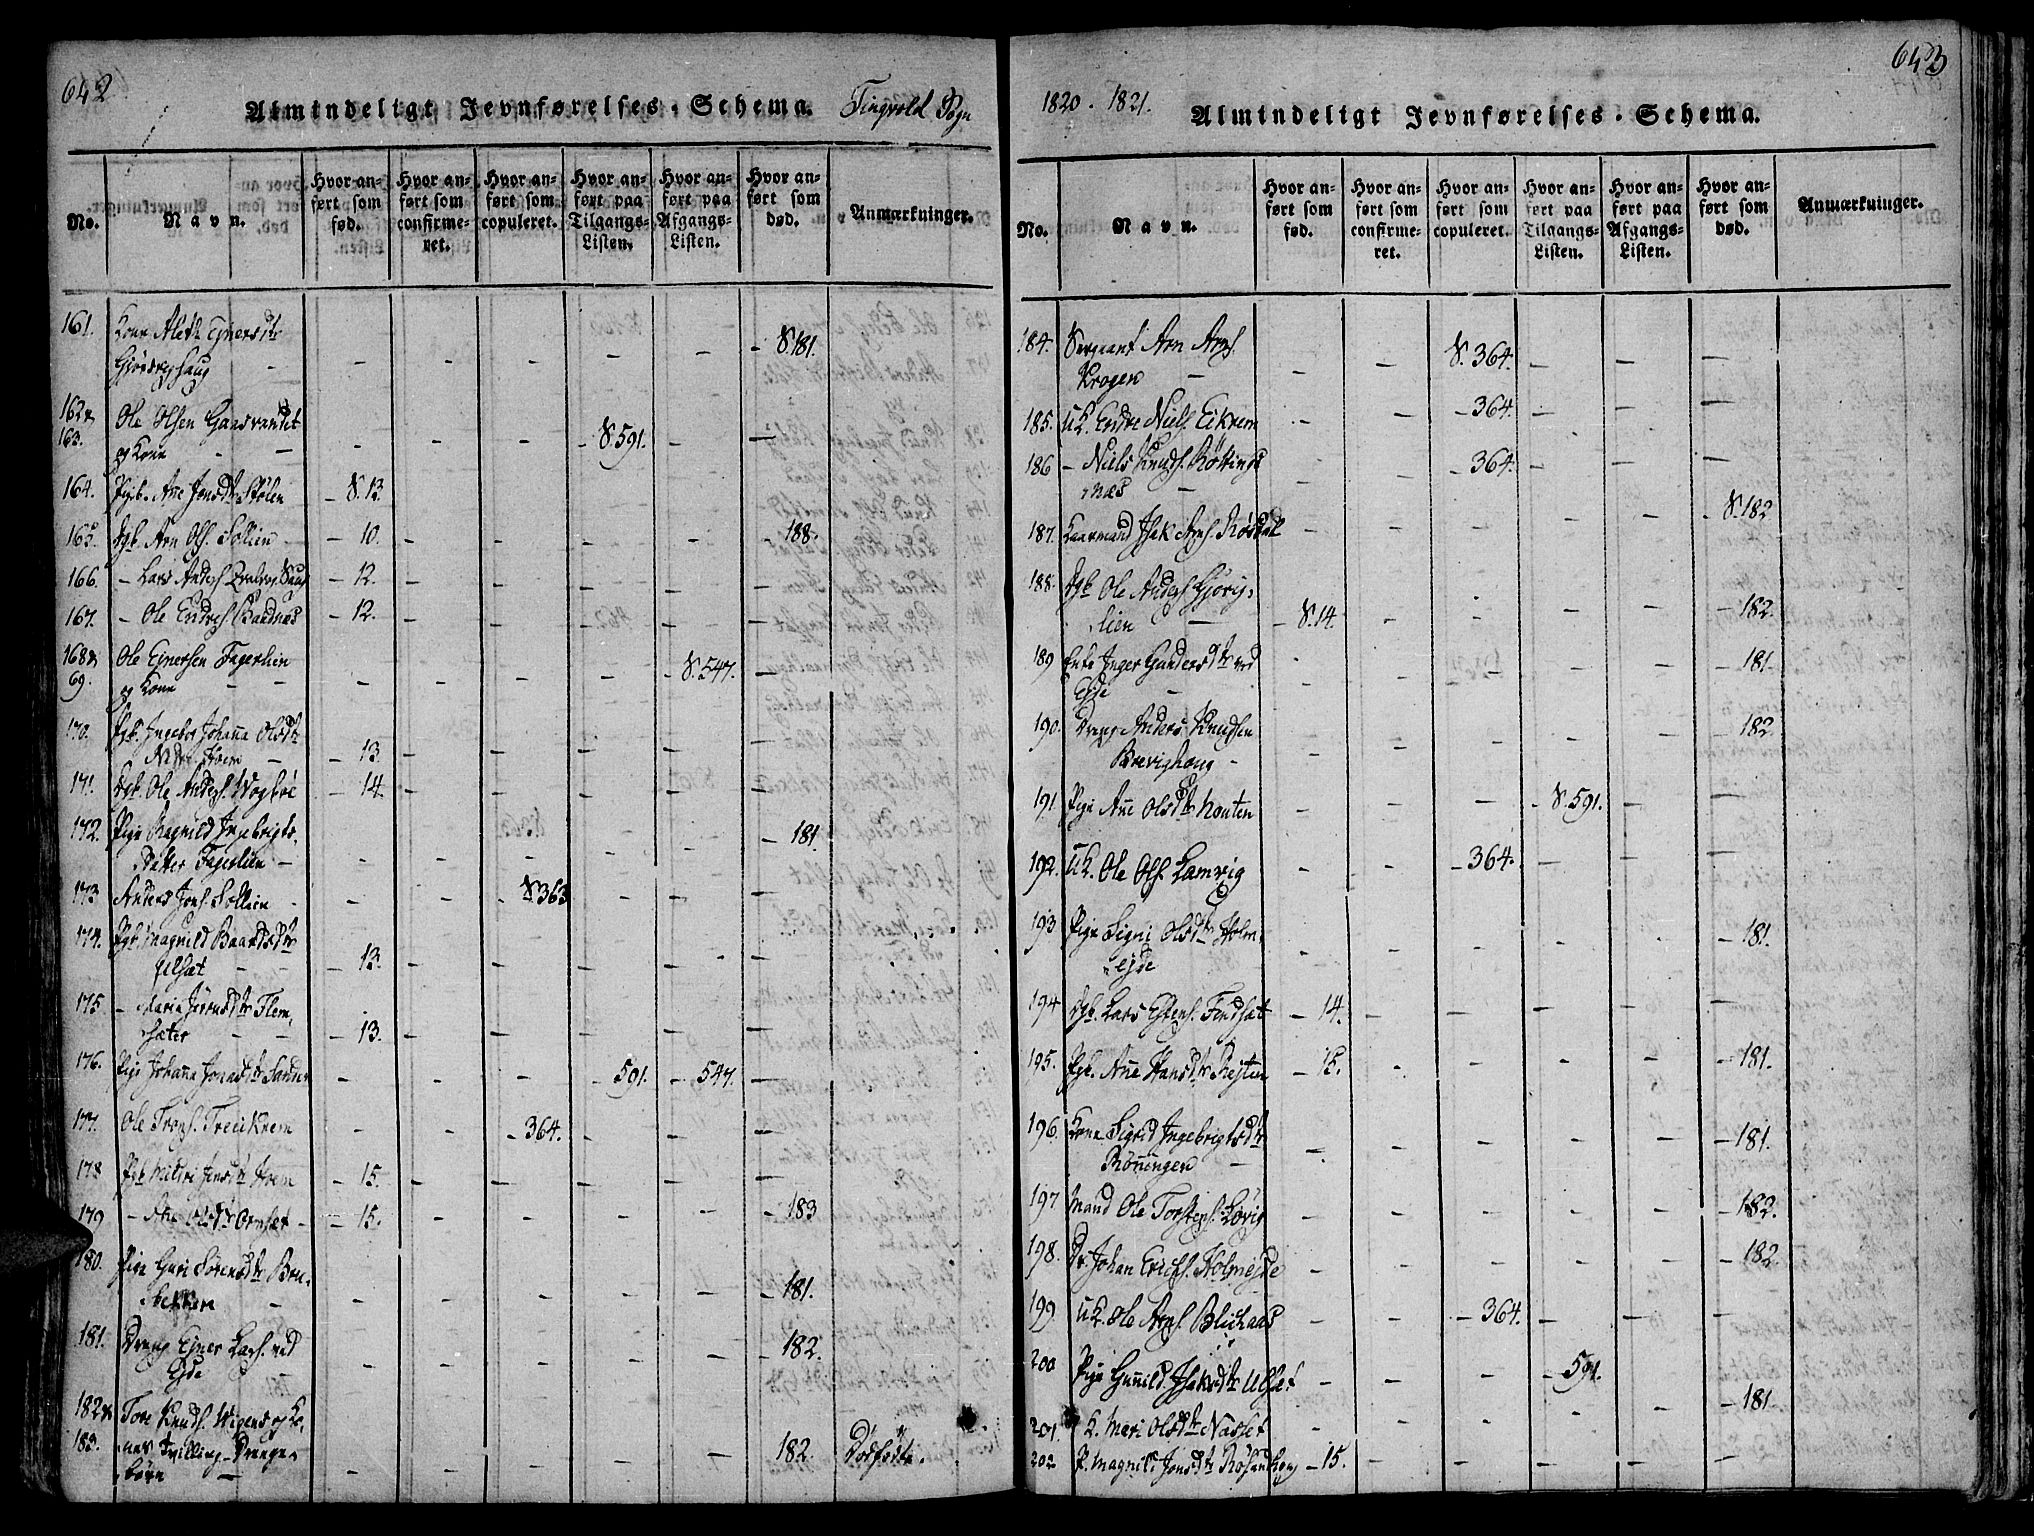 642
Almindeligt Jevnførelses-Schema. Tingvold Sogn
No.
Navn.
Hvor anført som fød.
Hvor anført som confirmeret.
Hvor anført som copuleret.
Hvor anført paa Tilgangs-Listen.
Hvor anført paa Afgangs-Listen.
Hvor anført som død.
Anmærkninger.
161. Kone Aleth Ejnersdtr
- - - - - - S. 181.
162 &
163. Ole Olsen Gaasvandet
og Kone - - - - S. 591. - -
164. Pigb. Ane Jonsdtr Stølen - S. 13
165. Dgb. Arn Ols. Sollien - 10. - - - - 188.
166. - Lars Anders. - 12. - - - - -
167. - Ole Endres. Baardnæs - 12. - - - - -
168 & Ole Ejnersen Fagerlien
69. og Kone - - - - - - S. 547. -
170. Pgb. Ingebor Johana Olsdtr
- 13. - - - - -
171. Dgb. Ole Anders. Wogbøe - 14. - - - - -
172. Pige Ragnild Ingebrigts
Datter Fagerlien - - - - - - 181.
173 Anders Jons. Sollien - - - S. 363 - - -
174. Pgb. Magnild Baardsdtr
- 13. - - - - -
175 - Maria Jørnsdtr Flem,
sæter - - 13. - - - - -
176. Pige Johana Jonasdtr Sander - - - 591. - 547. -
177. Ole Trons. - - - 364. - - -
178 Pgb Mildri Jensdtr - 15. - - - - -
179 - Ane Olsdtr Ornset - - 15. - - - - - 183
180. Pige Guri Sørensdtr Bru,
- - - - - - 181.
181. Dreng Ejner Lars. ved
Ejde - - - - - - 182.
182 & Tore Knuds. Wigens og Ko,
183. nes Tvilling-Drenge,
børn - - - - - - 182. Dødfødte.
1820. 1821.
Almindeligt Jevnførelses-Schema.
643
No.
Navn.
Hvor anført som fød.
Hvor anført som confirmeret.
Hvor anført som copuleret.
Hvor anført paa Tilgangs-Listen.
Hvor anført paa Afgangs-Listen.
Hvor anført som død.
Anmærkninger.
184. Sergeant Arn Arns.
Krogen - - - S. 364. - - -
185. UK. Endre Niels. Eikrem - - - 364. - - -
186 - Niels Knuds. Røttings
næs - - 364. - - -
187. Kaarmand Isak Arns. Røsdal - - - - - - S. 182
188. Dgb Ole Anders. Gjørig,
lien - - S. 14. - - - - - 182.
189 Enke Inger Gundersdtr ved
Ejde - - - - - - 181.
190. Dreng Anders Knudsen
Brevighaug - - - - - - 182.
191. Pige Ane Olsdtr Houten - - - - S. 591. - -
192. UK. Ole Ols. Lamvig - - - 364. - - -
193 Pige Signi Olsdtr Holm,
ejde - - - - - - 181.
194 Dgb. Lars Estens. Findset - 14. - - - - -
195. Pgb. Ane Hansdtr Rejten - 15. - - - - - 181.
196. Kone Sigrid Ingebrigtsdtr
Røningen - - - - - - - 181.
197 Mand Ole Torstens. Løvig - - - - - - 182.
198. Dr. Johan Erichs. Holmejde - - - - - - 182.
199 UK. Ole Arns. Blichaas - - - 364. - - -
200 Pige Gunild Isaksdtr Ulset - - - - 591. - -
201 K. Meri Olsdtr Nasset - 181
202 P. Magnild Jonsdtr Røsandhoug - 15. - - - - -